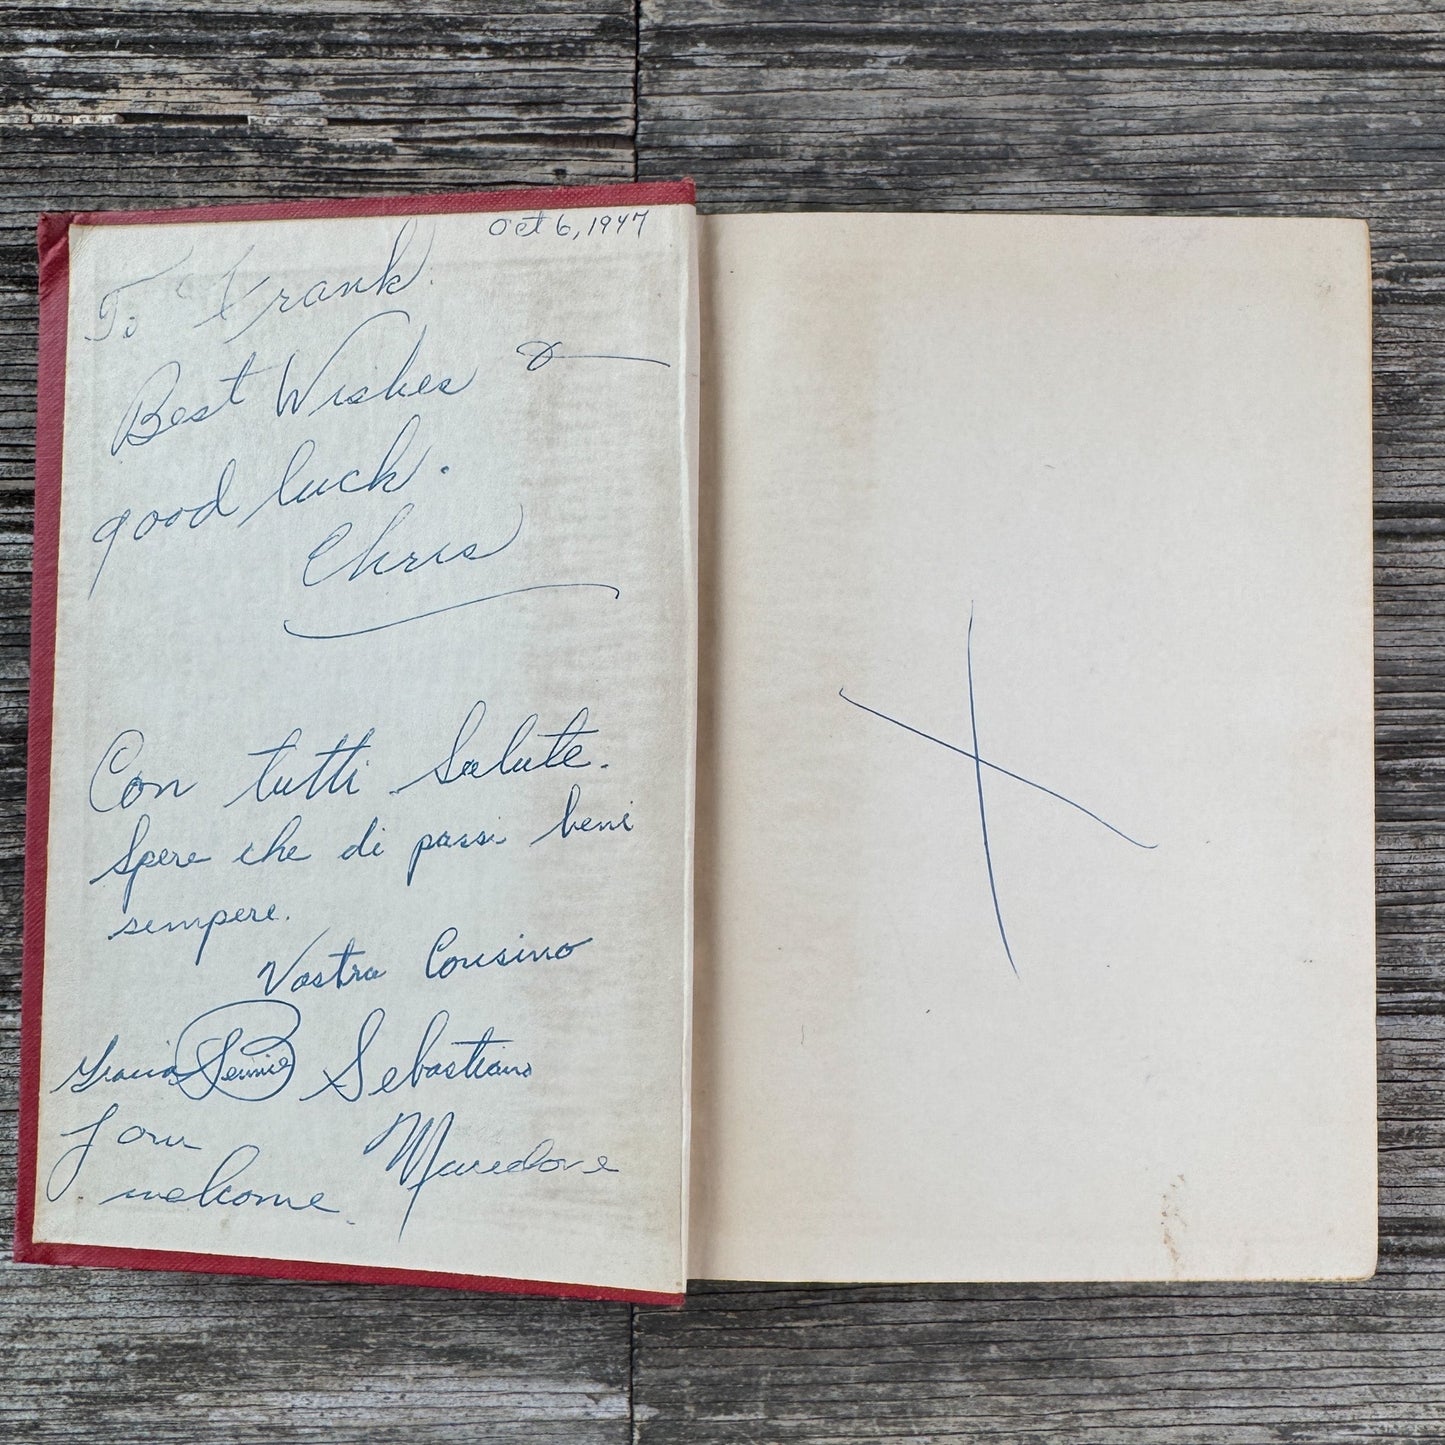 Oct 6, 1947
To Frank.
Best Wishes &
good luck.
Chris
Con tutti Salute.
Spere che di passi beni
sempere.
Vostra Cousino
Sebastiano
Gracia Pennie
your
welcome.